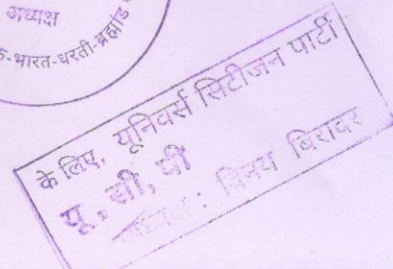 अध्यक्ष
क-भारत-धरती-ब्रह्मांड
के लिए, यूनिवर्स सिटीजन पार्टी
यू. सी. पी
अध्यक्ष : विनय बिरादर